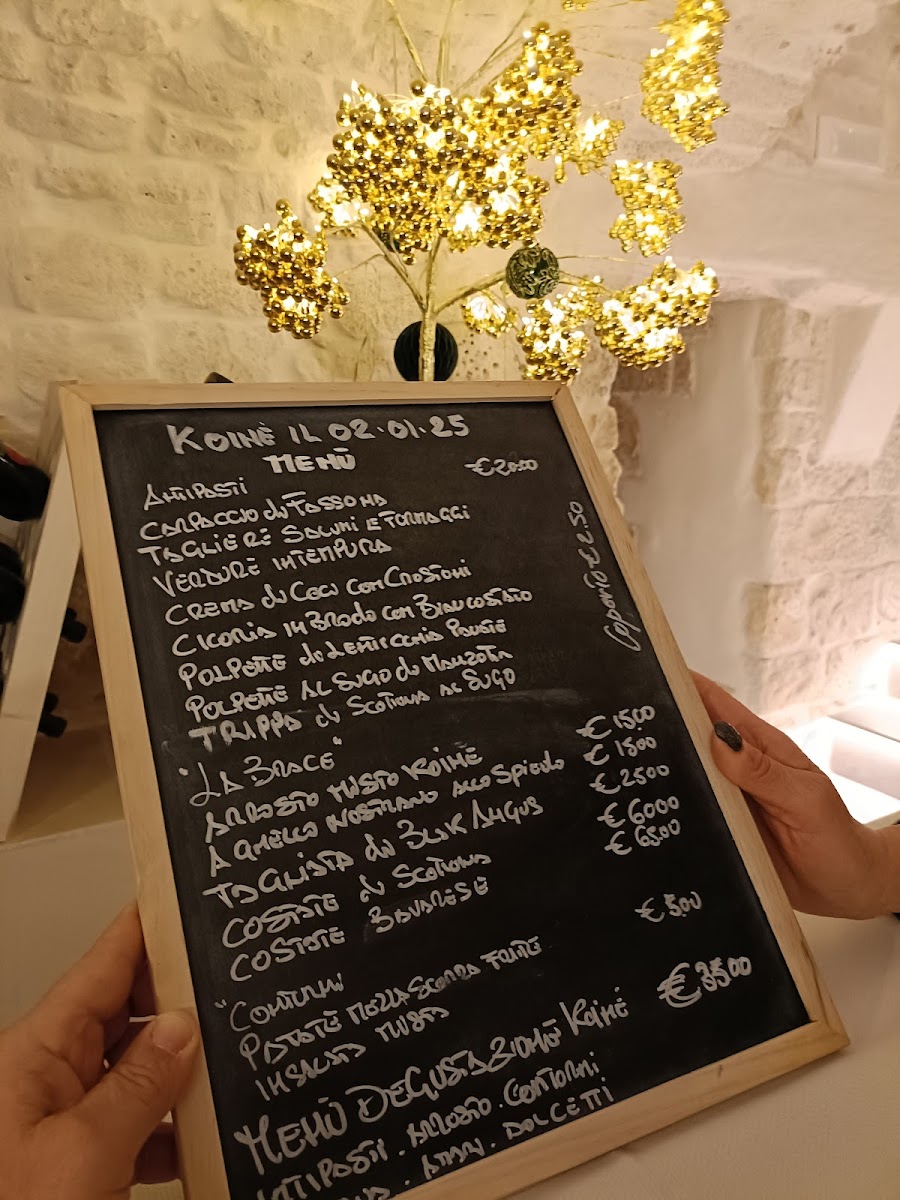 KOINÈ IL 02.01.25
MENÙ
ANTIPASTI €20.00
CARPACCIO di FASSONA
TAGLIERE SALUMI E FORMAGGI
VERDURE IN TEMPURA
CREMA di CECI con CROSTONI
CICORIA IN BRODO con BIANCOSTATO
POLPETTE di LENTICCHIA
POLPETTE AL SUGO di MANZOTA
TRIPPA di SCOTTONA AL SUGO
Coperto €2.50
"LA BRACE"
ARROSTO MISTO KOINÈ €15.00
AGNELLO NOSTRANO ALLO SPIEDO €18.00
TAGLIATA di BLAK ANGUS €25.00
COSTATE di SCOTTONA €60.00
COSTATE BAVARESE €65.00
"CONTORNI
PATATE MEZZA SCORZA FRITTE €5.00
INSALATA MISTA
MENÙ DEGUSTAZIONE KOINÈ €35.00
ANTIPASTI . ARROSTO . CONTORNI
DOLCETTI